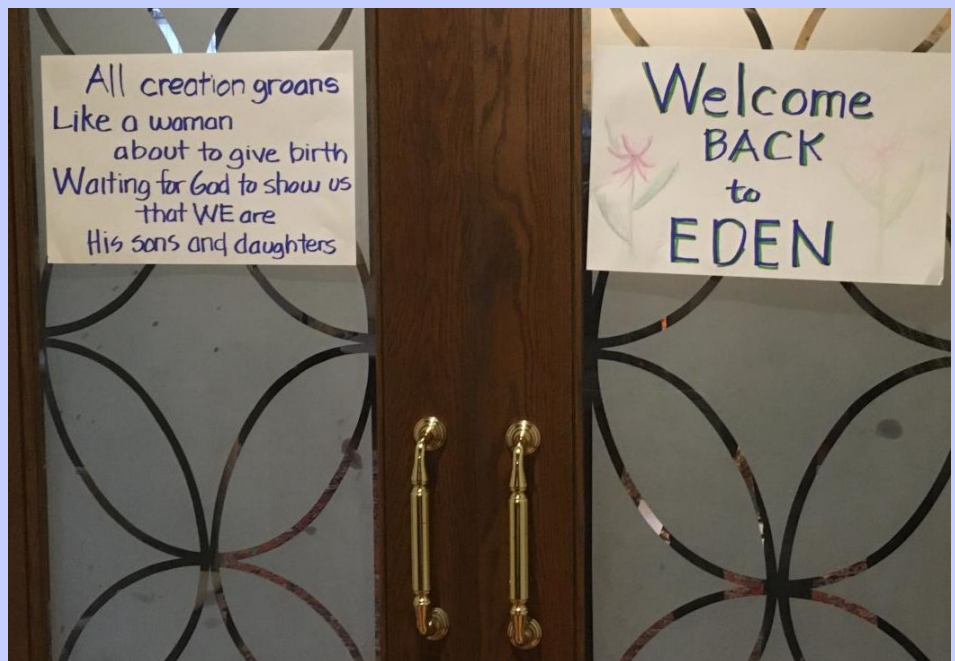 All creation groans
Like a woman
about to give birth
Waiting for God to show us
that WE are
His sons and daughters
Welcome
BACK
to
EDEN